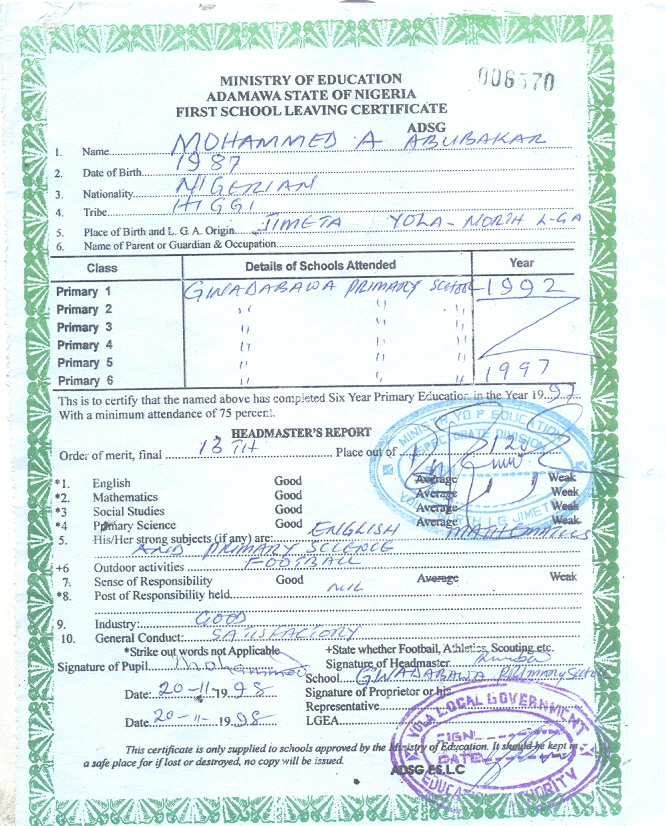 MINISTRY OF EDUCATION
ADAMAWA STATE OF NIGERIA
FIRST SCHOOL LEAVING CERTIFICATE
006570
ADSG
1. Name MOHAMMED A ABUBAKAR
2. Date of Birth 1987
3. Nationality NIGERIAN
4. Tribe HIGGI
5. Place of Birth and L. G. A. Origin JIMETA YOLA-NORTH L-GA
6. Name of Parent or Guardian & Occupation
Class Details of Schools Attended Year
Primary 1 GWADABAWA PRIMARY SCHOOL 1992
Primary 2 " "
Primary 3 " "
Primary 4 " "
Primary 5 " "
Primary 6 " " 1997
Ths is to certify that the named above has completed Six Year Primary Education in the Year 1997
With a minimum attendance of 75 percent.
HEADMASTER'S REPORT
Order of merit, final 13TH Place out of
MINISTRY OF EDUCATION
INSPECTORATE DIVISION
JIMETA
*1. English Good Average Weak
*2. Mathematics Good Average Weak
*3 Social Studies Good Average Weak
*4 Primary Science Good Average Weak
5. His/Her strong subjects (if any) are: ENGLISH MATHEMATICS
AND PRIMARY SCIENCE
+6 Outdoor activities FOOTBALL
7. Sense of Responsibility Good Average Weak
*8. Post of Responsibility held NIL
9. Industry: GOOD
10. General Conduct: SATISFACTORY
*Strike out words not Applicable +State whether Football, Athletics, Scouting etc.
Signature of Pupil Mohammed Signature of Headmaster
School GWADABAWA PRIMARY SCHOOL
Date: 20-11-1998 Signature of Proprietor or his
Representative
Date 20-11-1998 LGEA
YOLA LOCAL GOVERNMENT
SIGN
DATE
EDUCATION AUTHORITY
This certificate is only supplied to schools approved by the Ministry of Education. It should be kept in
a safe place for if lost or destroyed, no copy will be issued.
ADSG F.S.L.C